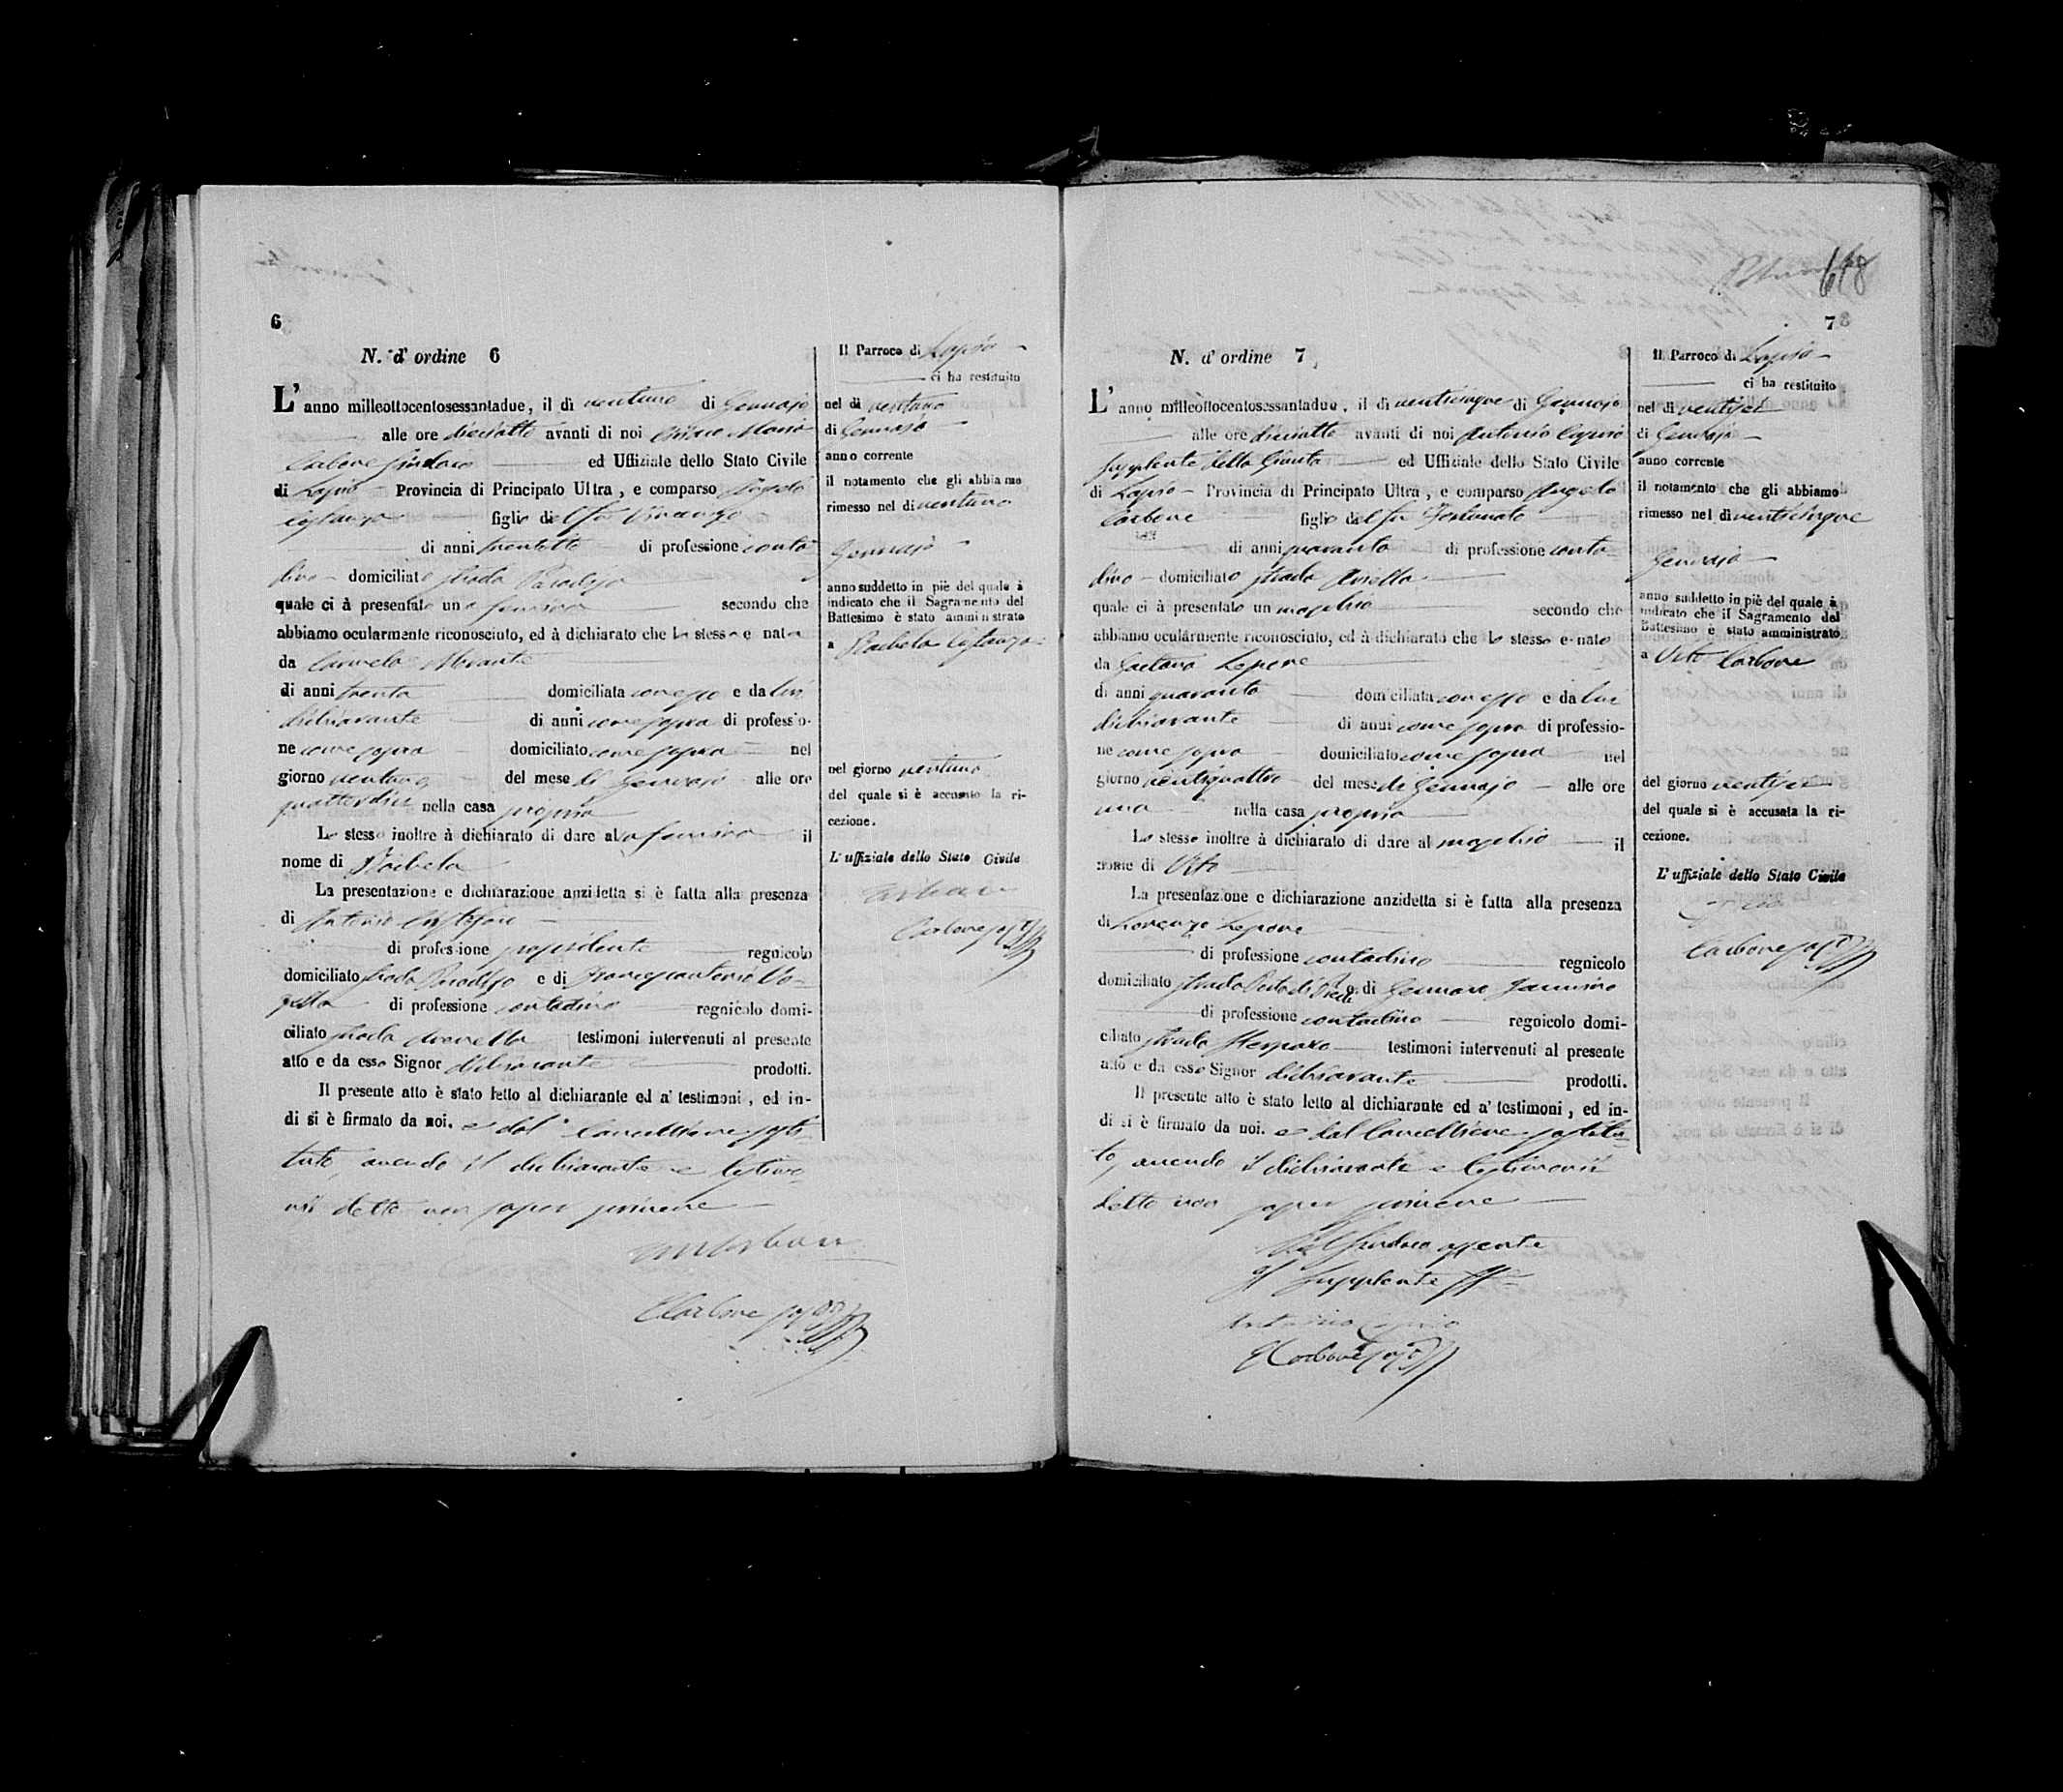 6
N. d' ordine 6
L' anno milleottocentosessantadue, il dì ventuno di Gennajo
alle ore diciotto avanti di noi Maria
Carbone Sindaco ed Uffiziale dello Stato Civile
di Lapio Provincia di Principato Ultra, e comparso Angelo
Costanza figlio del fu Vincenzo
di anni trentotto di professione conta
dino domiciliato strada Paradiso
quale ci à presentato una femina secondo che
abbiamo ocularmente riconosciuto, ed à dichiarato che la stessa e nata
da Carmela Morante
di anni trenta domiciliata con esso e da lui
dichiarante di anni come sopra di professio-
ne come sopra domiciliato come sopra nel
giorno ventuno del mese di Gennajo alle ore
quattordici nella casa propria
Lo stesso inoltre à dichiarato di dare alla femina il
nome di Rachela
La presentazione e dichiarazione anzidetta si è fatta alla presenza
di Antonio
di professione possidente regnicolo
domiciliato strada Paradiso e di Francescantonio
di professione contadino regnicolo domi-
ciliato strada testimoni intervenuti al presente
atto e da esso Signor dichiarante prodotti.
Il presente atto è stato letto al dichiarante ed a' testimoni, ed in-
di si è firmato da noi. e dal Cancelliere sosti-
tuto, avendo il dichiarante e testimo-
nii detto non saper scrivere
Carbone
Il Parroco di Lapio
ci ha restituito
nel dì ventuno
di Gennajo
anno corrente
il notamento che gli abbiamo
rimesso nel dì ventuno
Gennajo
anno suddetto in piè del quale à
indicato che il Sagramento del
Battesimo è stato amministrato
a Rachela Costanza
nel giorno ventuno
del quale si è accusato la ri-
cezione.
L' uffiziale dello Stato Civile
Carbone
7
N. d' ordine 7
L' anno milleottocentosessantadue, il dì venticinque di Gennajo
alle ore diciotto avanti di noi Antonio Caputo
supplente della Giunta ed Uffiziale dello Stato Civile
di Lapio Provincia di Principato Ultra, e comparso Angelo
Carbone figlio del fu Fortunato
di anni quaranta di professione conta
dino domiciliato strada
quale ci à presentato un maschio secondo che
abbiamo ocularmente riconosciuto, ed à dichiarato che lo stesso e nato
da Gaetana Lepore
di anni quaranta domiciliata con esso e da lui
dichiarante di anni come sopra di professio-
ne come sopra domiciliato come sopra nel
giorno ventiquattro del mese di Gennajo alle ore
una nella casa propria
Lo stesso inoltre à dichiarato di dare al maschio il
nome di Vito
La presentazione e dichiarazione anzidetta si è fatta alla presenza
di Lorenzo Lepore
di professione contadino regnicolo
domiciliato strada e di Gennaro
di professione contadino regnicolo domi-
ciliato strada testimoni intervenuti al presente
atto e da esso Signor dichiarante prodotti.
Il presente atto è stato letto al dichiarante ed a' testimoni, ed in-
di si è firmato da noi. e dal Cancelliere sostitu-
to, avendo il dichiarante e testimonii
detto non saper scrivere
Pel Sindaco assente
Il Supplente
Carbone
Il Parroco di Lapio
ci ha restituito
nel dì ventisei
di Gennajo
anno corrente
il notamento che gli abbiamo
rimesso nel dì venticinque
Gennajo
anno suddetto in piè del quale à
indicato che il Sagramento del
Battesimo è stato amministrato
a Vito Carbone
del giorno ventisei
del quale si è accusata la ri-
cezione.
L' uffiziale dello Stato Civile
Carbone